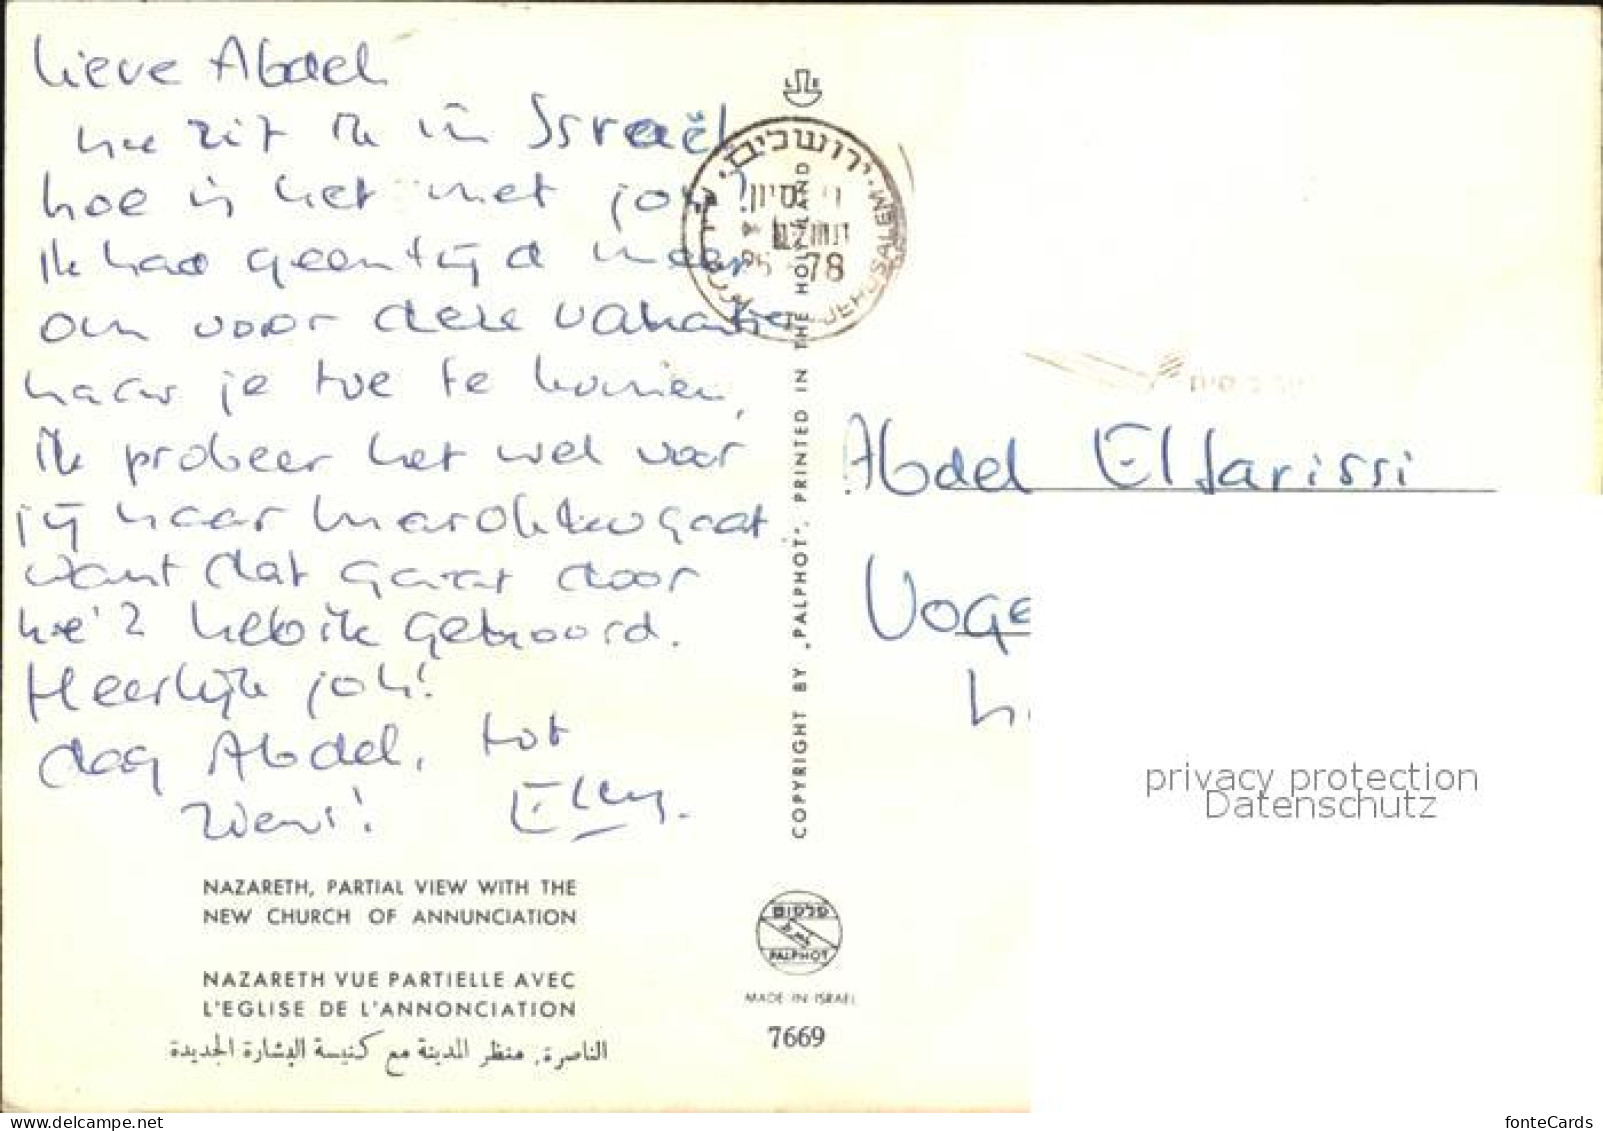 lieve Abdel
nu zit ik in Israël
hoe is het met jou?
Ik had geen tijd meer
om voor deze vakantie
naar je toe te komen,
Ik probeer het wel voor
jij naar Marokko gaat
want dat gaat door
hè? heb ik gehoord.
Heerlijk joh!
dag Abdel, tot
ziens! Elly.
NAZARETH, PARTIAL VIEW WITH THE
NEW CHURCH OF ANNUNCIATION
NAZARETH VUE PARTIELLE AVEC
L'EGLISE DE L'ANNONCIATION
الناصرة، منظر المدينة مع كنيسة البشارة الجديدة
COPYRIGHT BY „PALPHOT", PRINTED IN THE HOLYLAND
ירושלים
78
JERUSALEM
פלפוט
PALPHOT
MADE IN ISRAEL
7669
Abdel Elfarissi
Voge
privacy protection
Datenschutz
https://www.delcampe.net
fonteCards